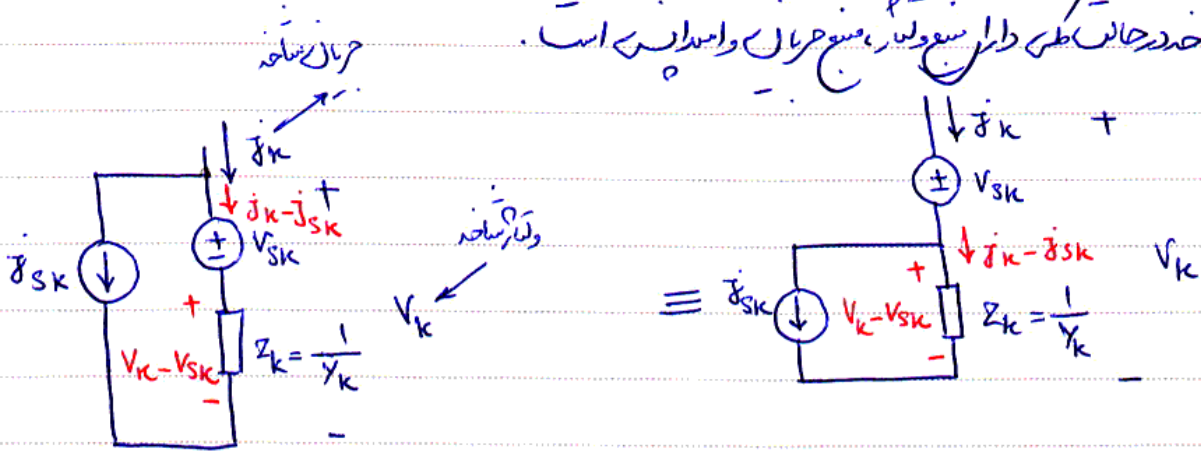 شاخه در حالت کلی دارای منبع ولتاژ، منبع جریان و امپدانس است.
جریان شاخه
j_K
j_K - j_SK
+
V_SK
j_SK
+
V_K - V_SK
-
Z_K = 1/Y_K
-
ولتاژ شاخه
V_K
≡
j_K
+
V_SK
j_K - j_SK
j_SK
+
V_K - V_SK
-
Z_K = 1/Y_K
V_K
-